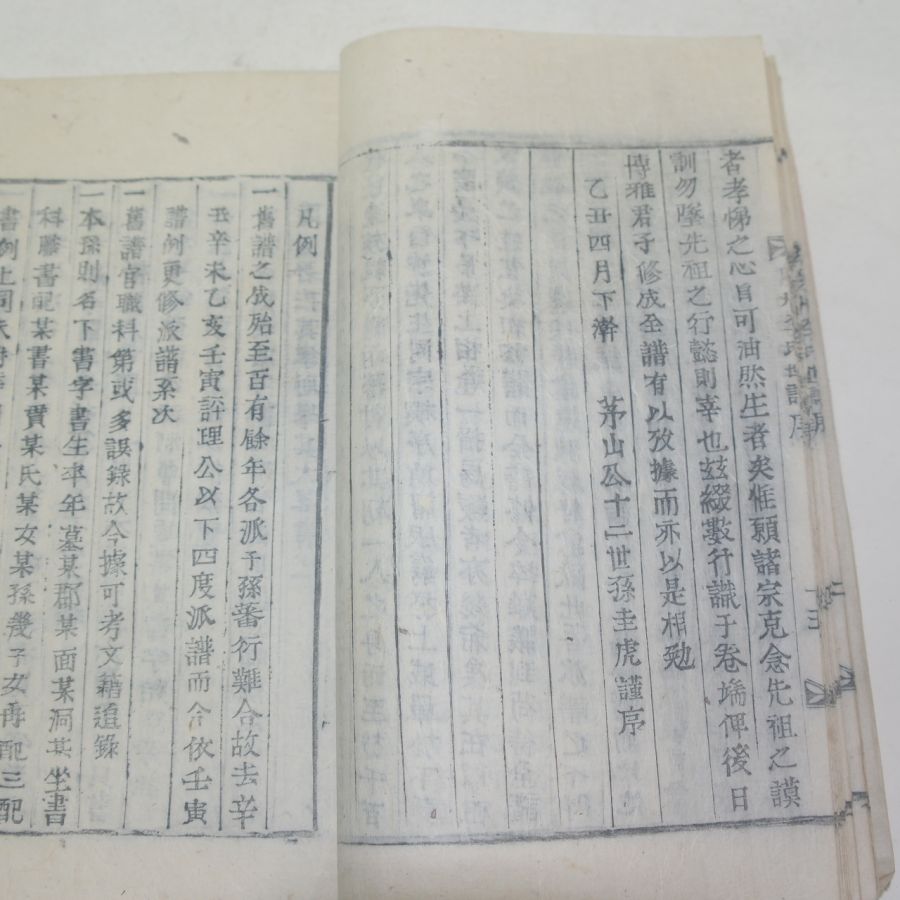 者孝悌之心自可油然生者矣惟願諸宗克念先祖之謨
訓勿墜先祖之行懿則幸也玆綴數行識于卷端俾後日
博雅君子修成全譜有以攷據而亦以是相勉
乙丑四月下澣 茅山公十二世孫圭虎謹序
凡例
一舊譜之成殆至百有餘年各派子孫蕃衍難合故去辛
丑辛未乙亥壬寅評理公以下四度派譜而合依壬寅
譜例更修派譜系次
一舊譜官職科第或多誤錄故今據可考文籍追錄
一本孫則名下書字書生卒年墓某郡某面某洞某坐書
科職書配某書某貫某氏某女某孫幾子女再配三配
書例上同